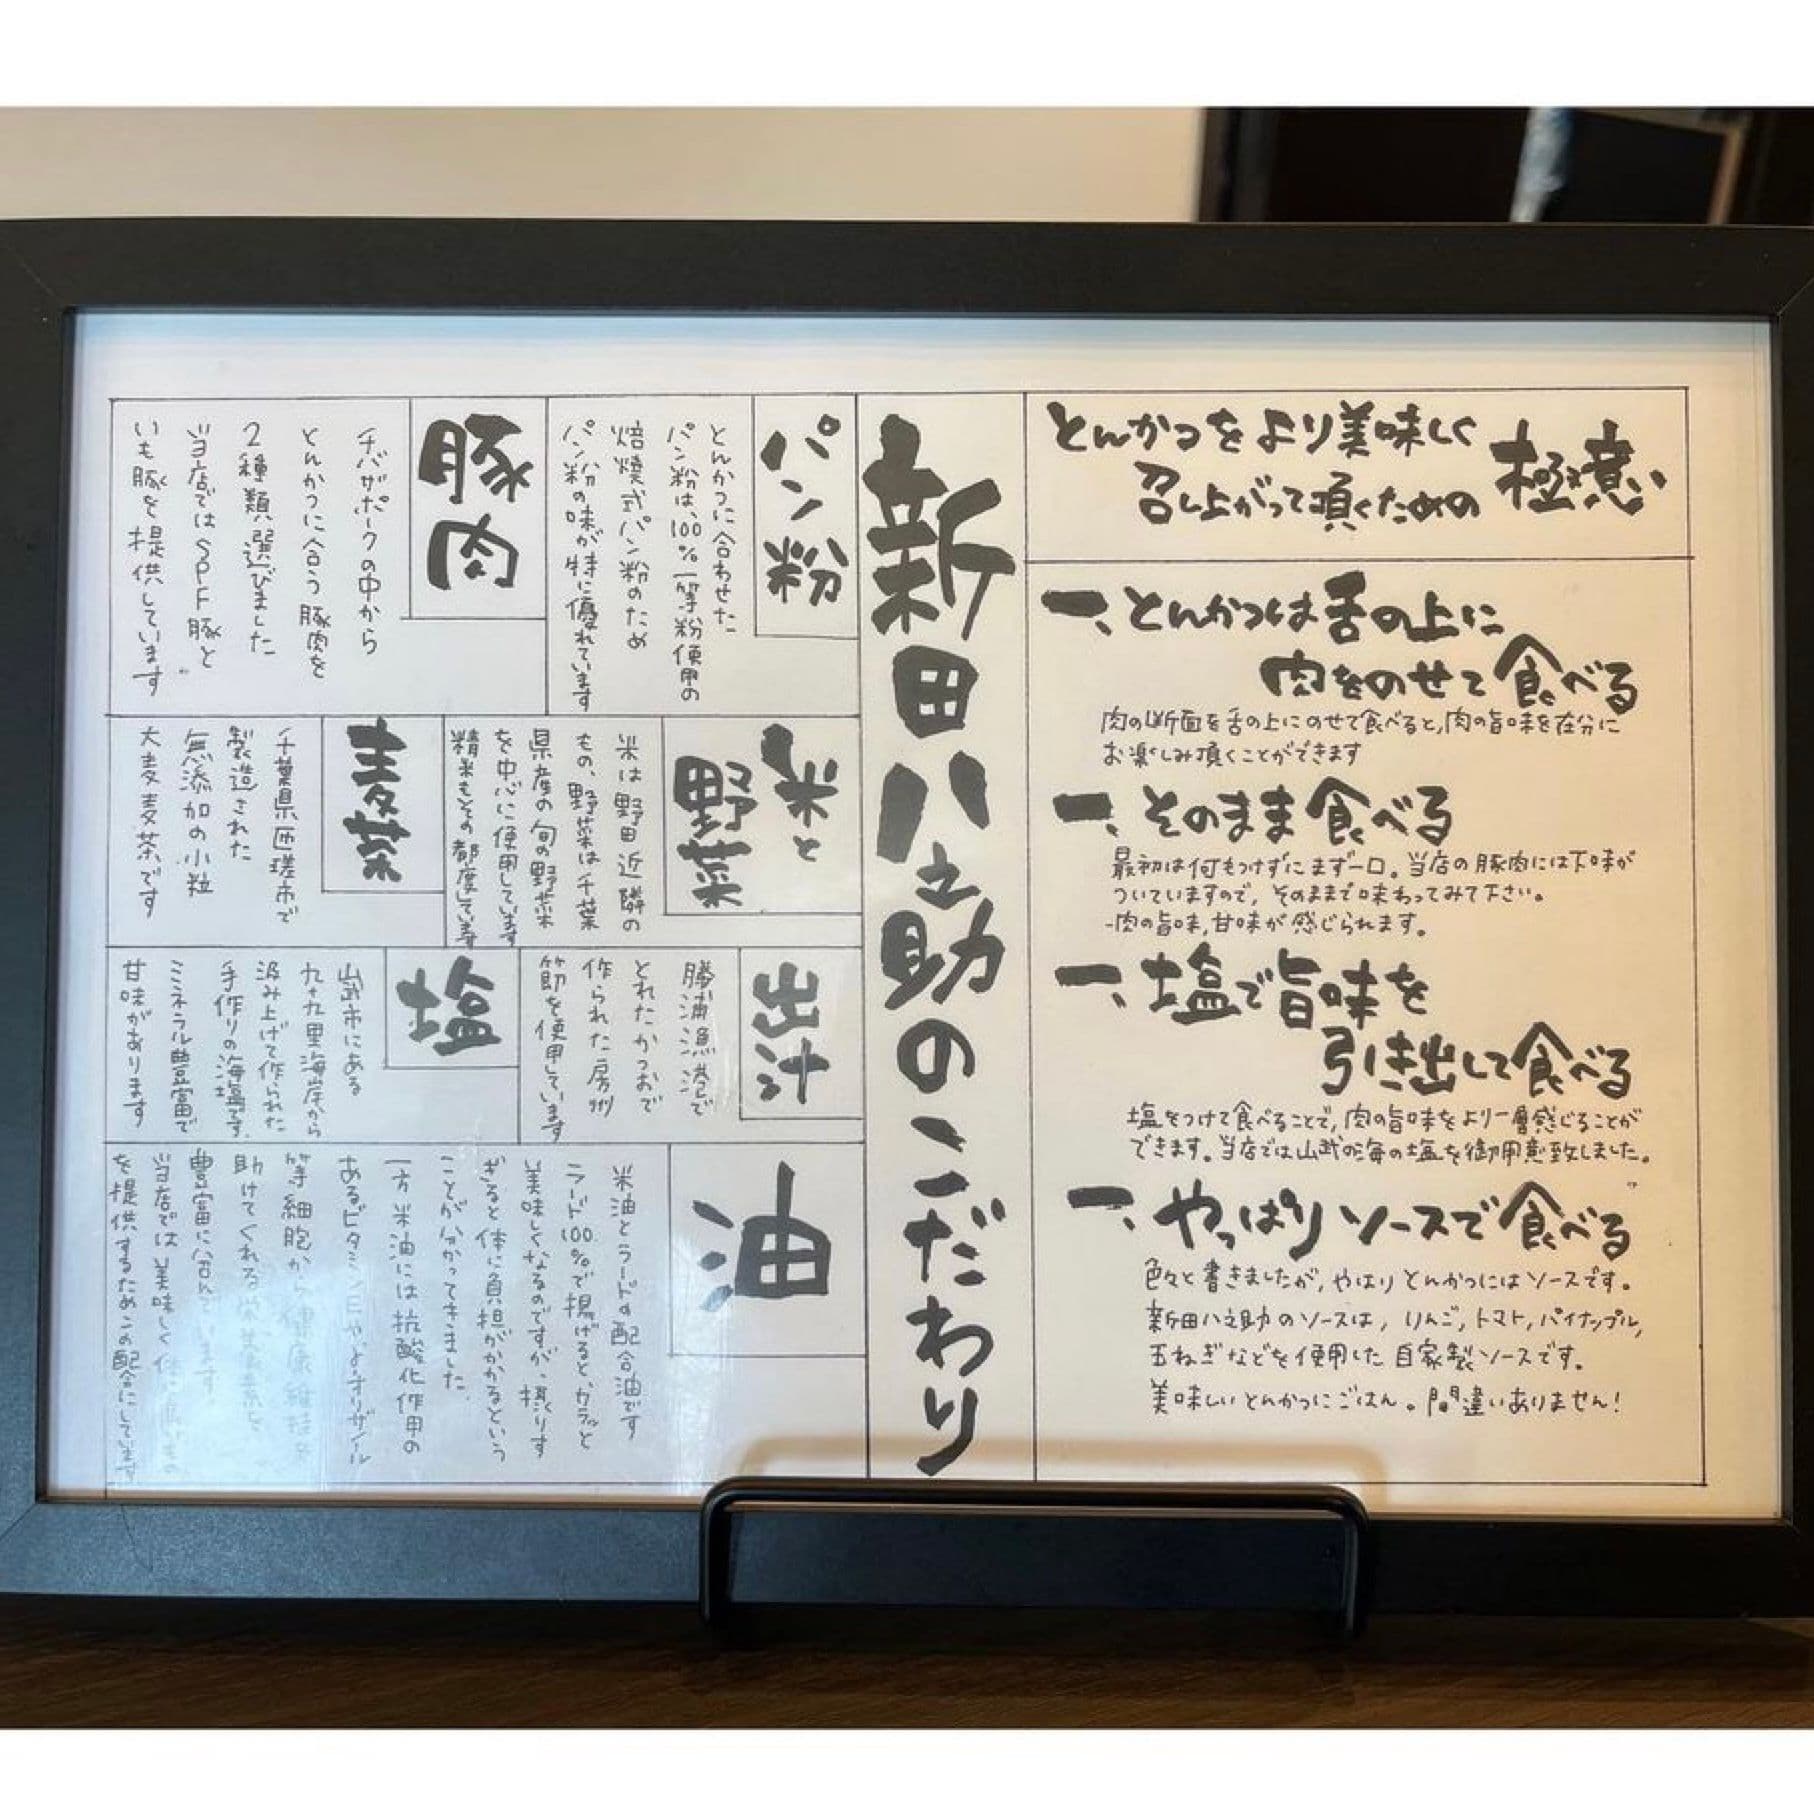 とんかつをより美味しく
召し上がって頂くための
極意
一、とんかつは舌の上に
肉をのせて食べる
肉の断面を舌の上にのせて食べると、肉の旨味を存分に
お楽しみ頂くことができます
一、そのまま食べる
最初は何もつけずにまず一口。当店の豚肉には下味が
ついていますので、そのままで味わってみて下さい。
肉の旨味、甘味が感じられます。
一、塩で旨味を
引き出して食べる
塩をつけて食べることで、肉の旨味をより一層感じることが
できます。当店では山武の海の塩を御用意致しました。
一、やっぱりソースで食べる
色々と書きましたが、やはりとんかつにはソースです。
新田八之助のソースは、りんご、トマト、パイナップル、
玉ねぎなどを使用した自家製ソースです。
美味しいとんかつにごはん。間違いありません!
新田八之助のこだわり
パン粉
とんかつに合わせた
パン粉は、100%一等粉使用の
焙焼式パン粉のため
パン粉の味が特に優れています
豚肉
チバザポークの中から
とんかつに合う豚肉を
2種類選びました
当店ではSPF豚と
いも豚を提供しています
米と
野菜
米は野田近隣の
もの、野菜は千葉
県産の旬の野菜
を中心に使用しています
精米もその都度しています
麦茶
千葉県匝瑳市で
製造された
無添加の小粒
大麦麦茶です
出汁
勝浦漁港で
とれたかつおで
作られた房州
節を使用しています
塩
山武市にある
九十九里海岸から
汲み上げて作られた
手作りの海塩です。
ミネラル豊富で
甘味があります
油
米油とラードの配合油です
ラード100%で揚げると、カラッと
美味しくなるのですが、摂りす
ぎると体に負担がかかるという
ことが分かってきました。
一方、米油には抗酸化作用の
あるビタミンEやγ-オリザノール
等細胞から健康維持を
助けてくれる栄養素を
豊富に含んでいます
当店では美味しく体に良いもの
を提供するためこの配合にしています